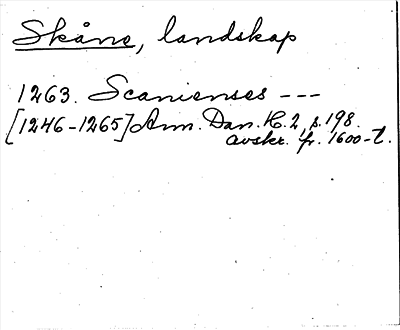 Skåne, landskap
1263. Scanienses ---
[1246-1265] Ann. Dan. H. 2, s. 198.
avskr. fr. 1600-t.